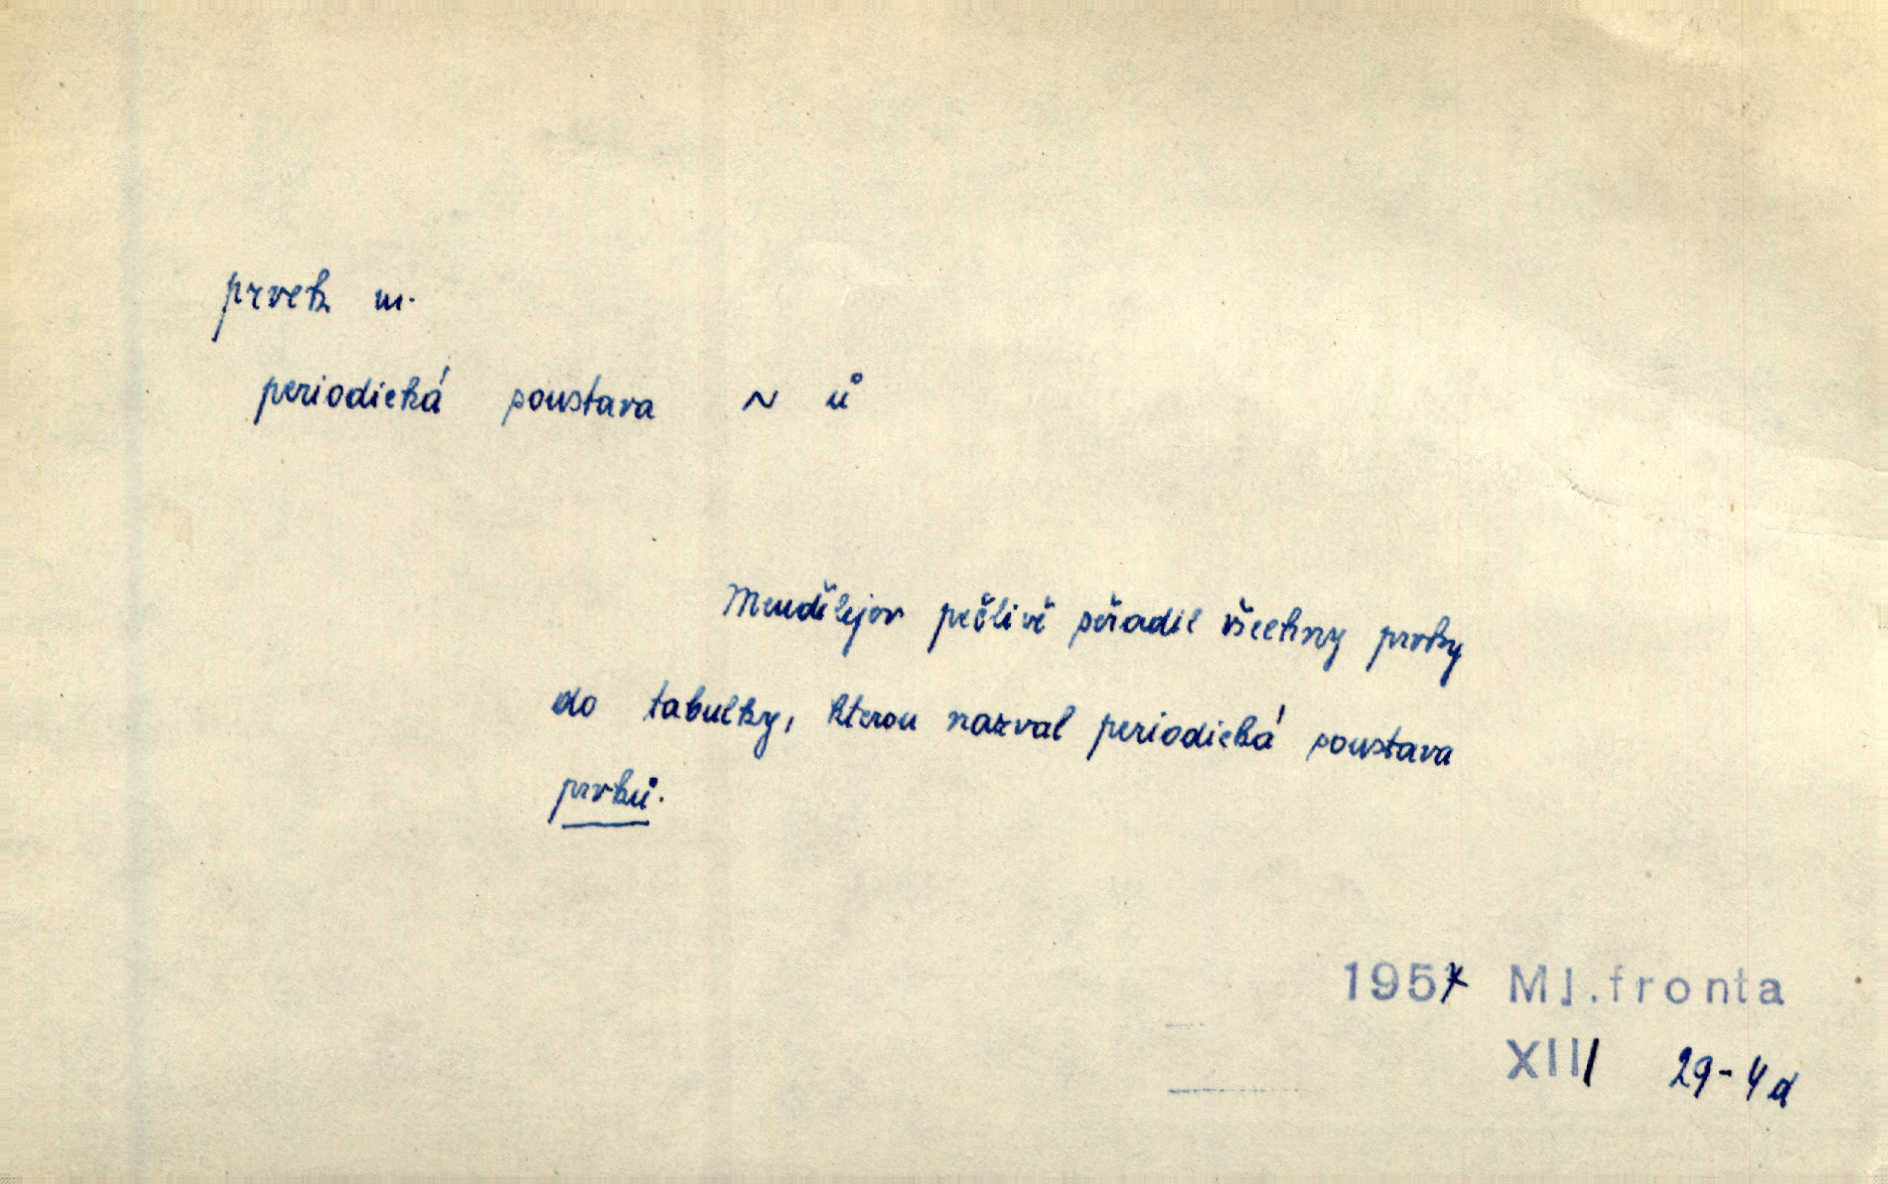 prvek m.
periodická soustava ~ ů
Mendělejev pečlivě seřadil všechny prvky
do tabulky, kterou nazval periodická soustava
prvků.
1957 Ml.fronta
XIII 29-4d